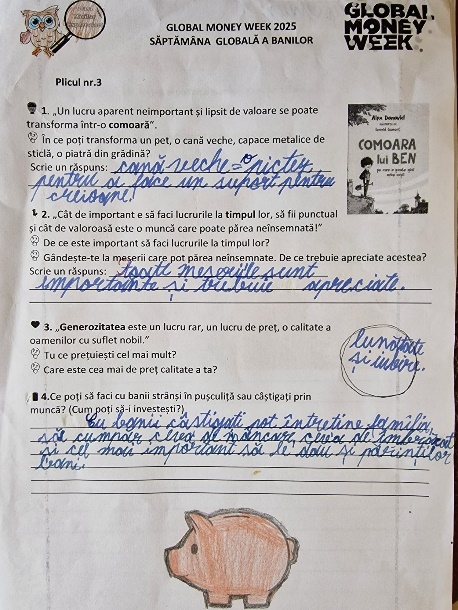 GLOBAL MONEY WEEK 2025
SĂPTĂMÂNA GLOBALĂ A BANILOR
GLOBAL
MONEY
WEEK
Plicul nr.3
1. „Un lucru aparent neimportant și lipsit de valoare se poate
transforma într-o comoară”.
În ce poți transforma un pet, o cană veche, capace metalice de
sticlă, o piatră din grădină?
Scrie un răspuns: cană veche = o pictez
pentru a face un suport pentru
creioane!
COMOARA
lui BEN
2. „Cât de important e să faci lucrurile la timpul lor, să fii punctual
și cât de valoroasă este o muncă care poate părea neînsemnată!”
De ce este important să faci lucrurile la timpul lor?
Gândește-te la meserii care pot părea neînsemnate. De ce trebuie apreciate acestea?
Scrie un răspuns: toate meseriile sunt
importante și trebuie apreciate.
3. „Generozitatea este un lucru rar, un lucru de preț, o calitate a
oamenilor cu suflet nobil.”
Tu ce prețuiești cel mai mult?
Care este cea mai de preț calitate a ta?
bunătate
și iubire.
4.Ce poți să faci cu banii strânși în pușculiță sau câștigați prin
muncă? (Cum poți să-i investești?)
Cu banii câștigați pot întreține familia,
să cumpăr ceva de mâncar, ceva de îmbrăcat
și cel mai important să le dau și părinților
bani.